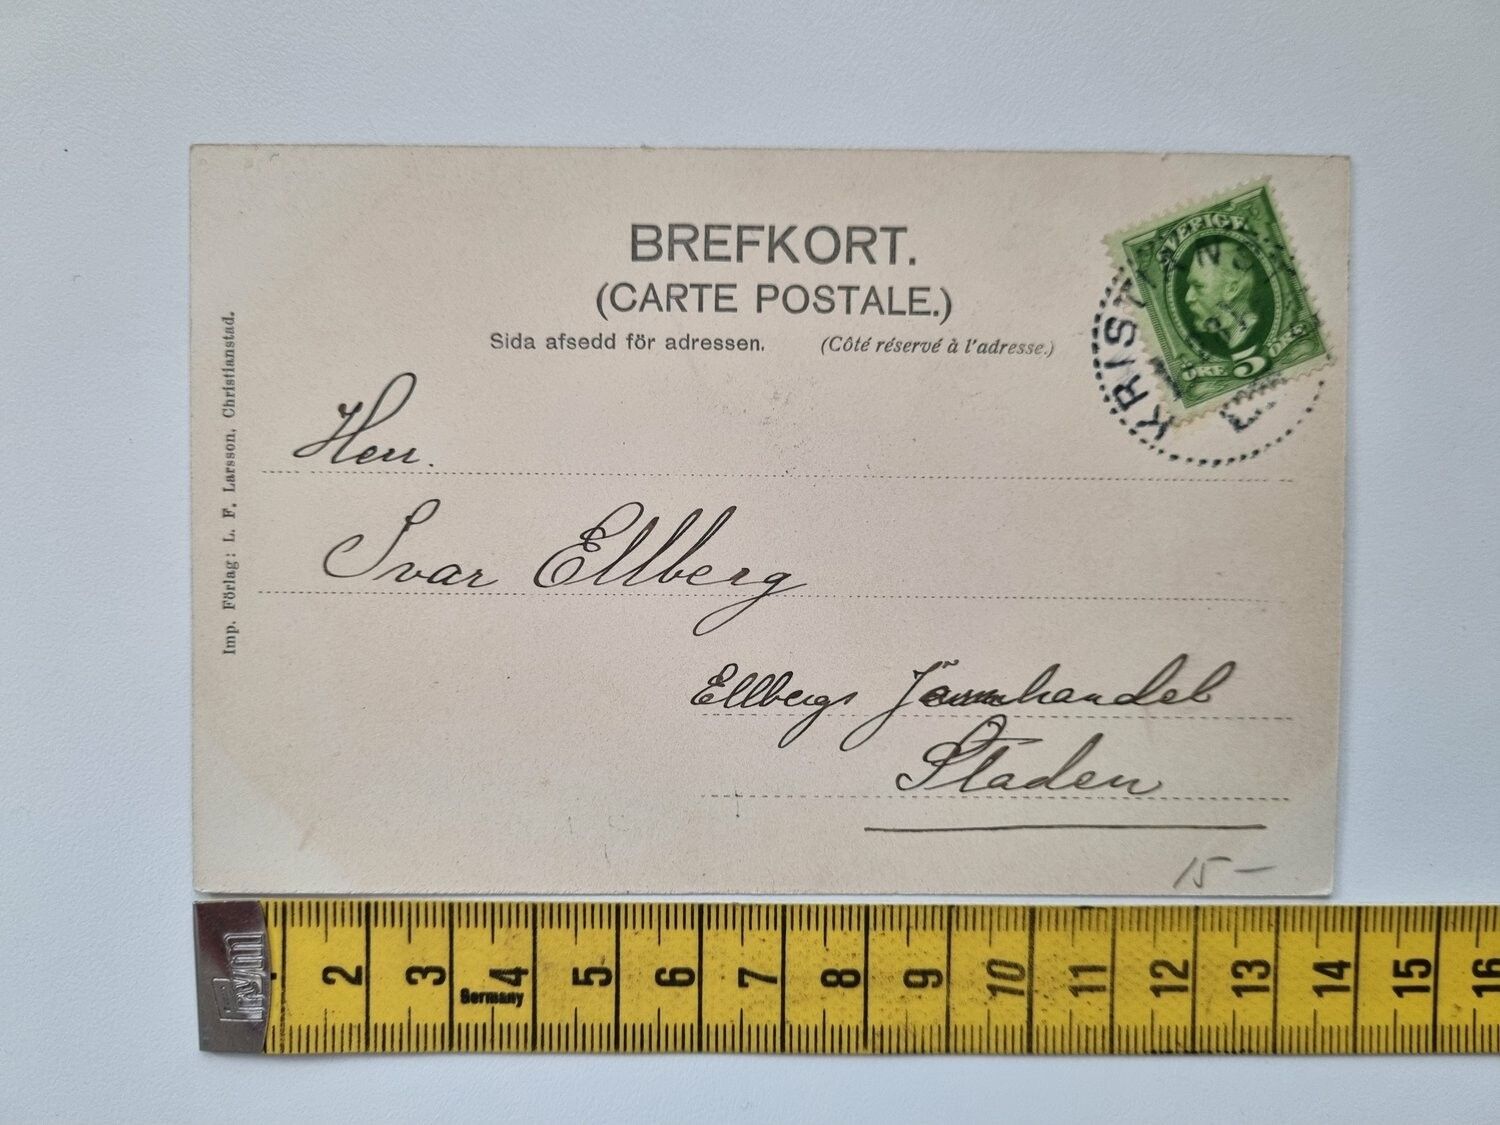 BREFKORT.
(CARTE POSTALE.)
Sida afsedd för adressen. (Côté réservé à l'adresse.)
SVERIGE
5
ÖRE ÖRE
KRISTIANS
Imp. Förlag: L. F. Larsson, Christianstad.
Herr.
Ivar Ellberg
Ellbergs Järnhandel
Staden
15-
Prym
Germany
2 3 4 5 6 7 8 9 10 11 12 13 14 15 16